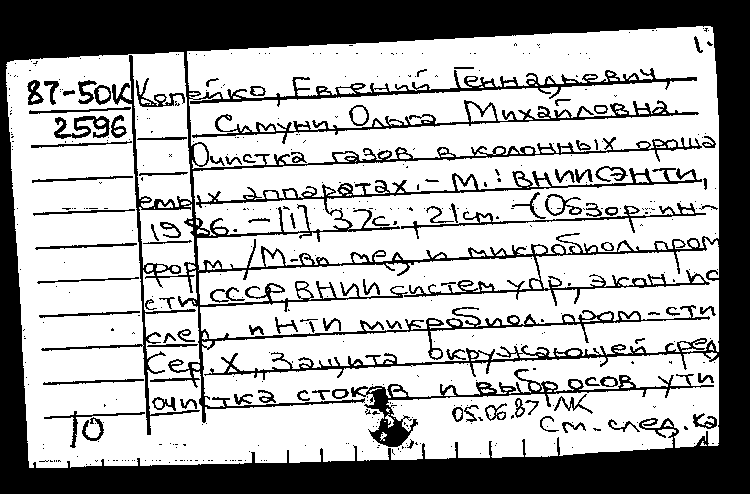 1.
87-50К Копейко, Евгений Геннадьевич,
2596 Симуни, Ольга Михайловна.
Очистка газов в колонных ороша
емых аппаратах. - М.: ВНИИСЭНТИ,
1986. - [1], 37с.; 21см. - (Обзор. ин-
форм. / М-во мед. и микробиол. пром
сти СССР, ВНИИ систем упр., экон. ис
след. и НТИ микробиол. пром-сти
Сер. X, „Защита окружающей сред
очистка стоков и выбросов, ути
10 05.06.87 ЛК
См. след. ка